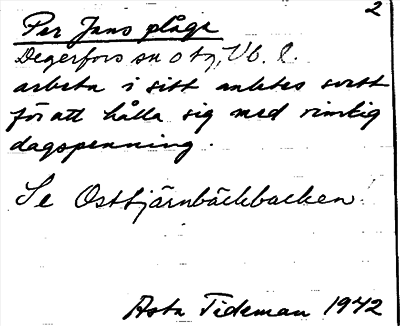 2
Per Jans plåge
Degerfors sn o tg, Vb. l.
arbeta i sitt anletes svett
för att hålla sig med rimlig
dagspenning.
Se Osttjärnbäckbacken
Asta Tideman 1942